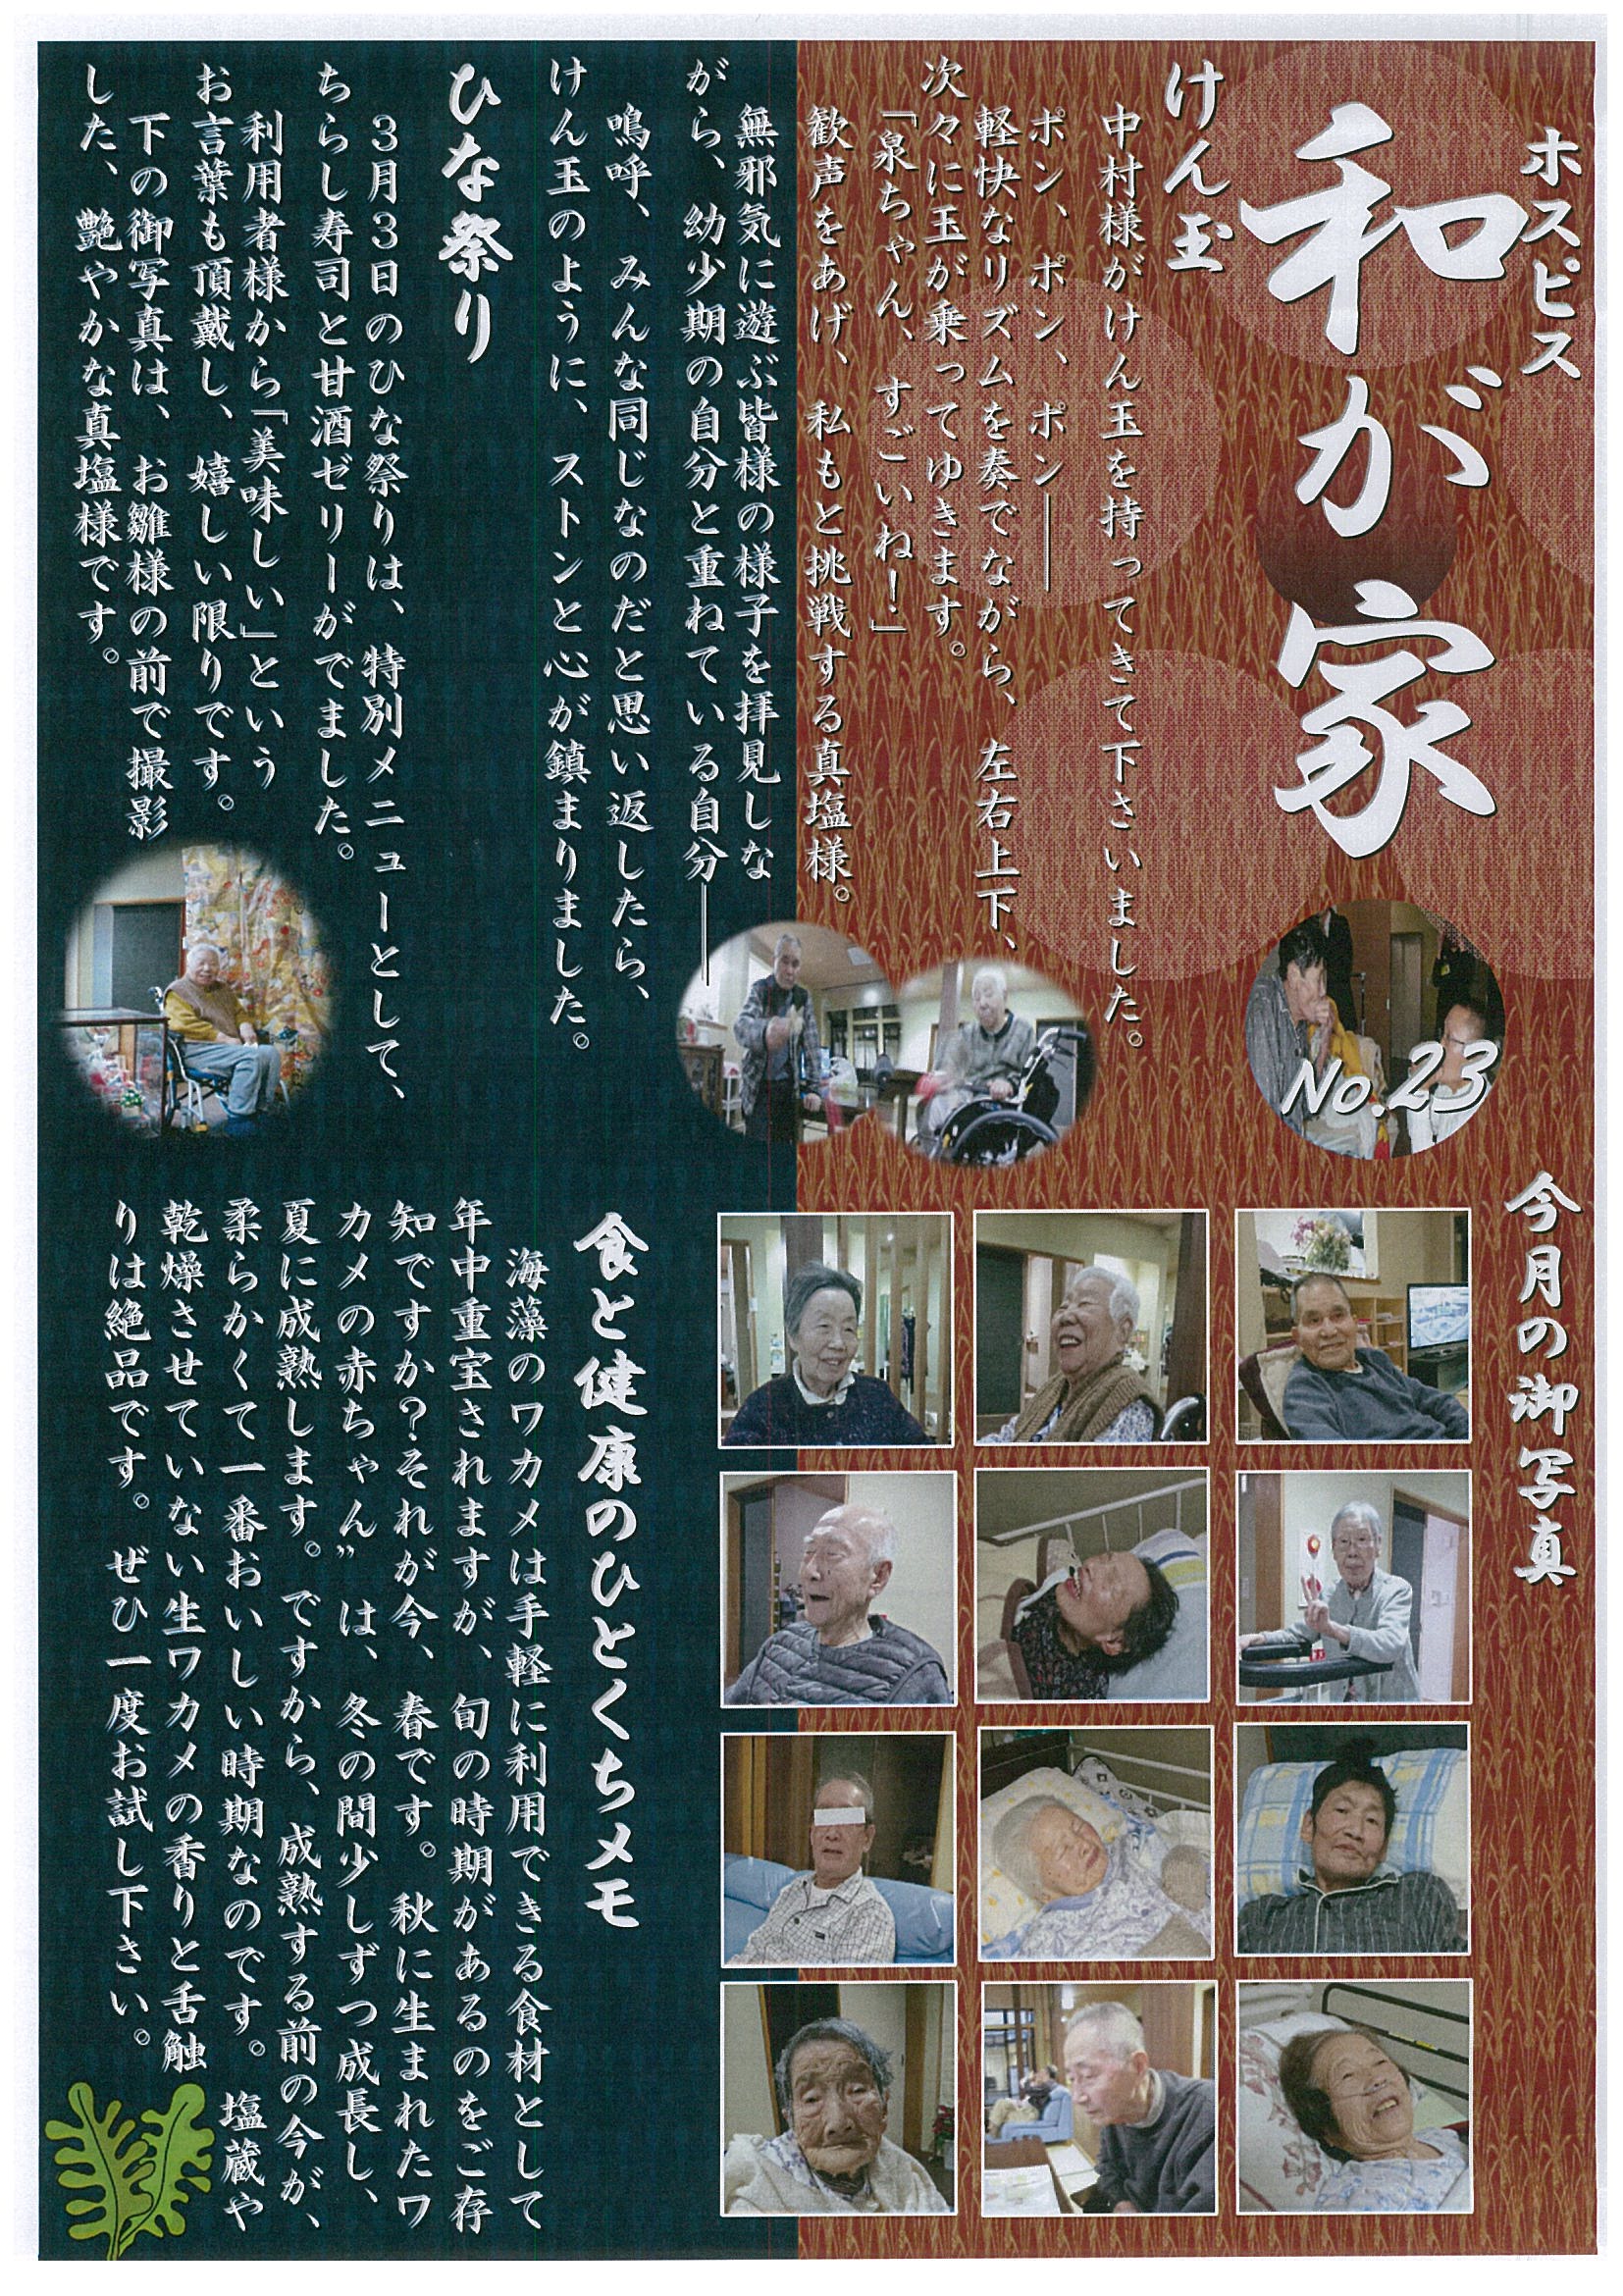 ホスピス
和が家
No.23
けん玉
中村様がけん玉を持ってきて下さいました。
ポン、ポン、ポン――
軽快なリズムを奏でながら、左右上下、
次々に玉が乗ってゆきます。
「泉ちゃん、すごいね！」
歓声をあげ、私もと挑戦する真塩様。
無邪気に遊ぶ皆様の様子を拝見しな
がら、幼少期の自分と重ねている自分――
鳴呼、みんな同じなのだと思い返したら、
けん玉のように、ストンと心が鎮まりました。
ひな祭り
３月３日のひな祭りは、特別メニューとして、
ちらし寿司と甘酒ゼリーがでました。
利用者様から「美味しい」という
お言葉も頂戴し、嬉しい限りです。
下の御写真は、お雛様の前で撮影
した、艶やかな真塩様です。
今月の御写真
食と健康のひとくちメモ
海藻のワカメは手軽に利用できる食材として
年中重宝されますが、旬の時期があるのをご存
知ですか？それが今、春です。秋に生まれたワ
カメの赤ちゃん”は、冬の間少しずつ成長し、
夏に成熟します。ですから、成熟する前の今が、
柔らかくて一番おいしい時期なのです。塩蔵や
乾燥させていない生ワカメの香りと舌触
りは絶品です。ぜひ一度お試し下さい。